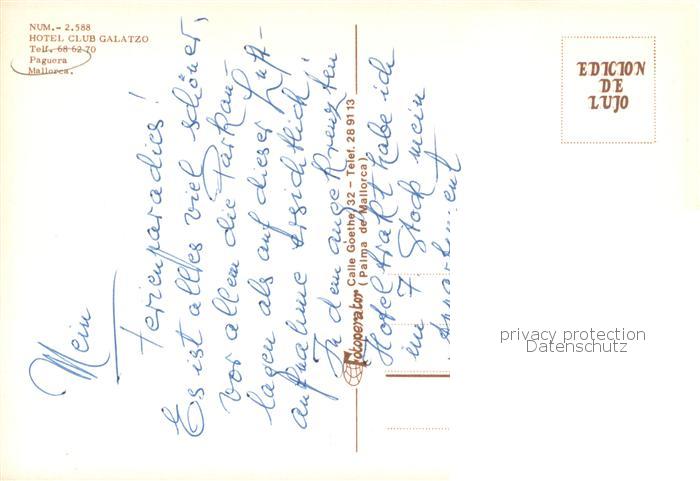 NUM.- 2.588
HOTEL CLUB GALATZO
Telf. 68 62 70
Paguera
Mallorca.
Mein
Ferienparadies!
Es ist alles viel schöner,
vor allem die Parkan-
lagen als auf dieser Luft-
aufnahme ersichtlich!
In dem angekreuzten
Hoteltrakt habe ich
im 7. Stock mein
Appartement
Fotoperator Calle Goethe, 32 - Telef. 28 91 13
(Palma de Mallorca)
EDICION
DE
LUJO
privacy protection
Datenschutz